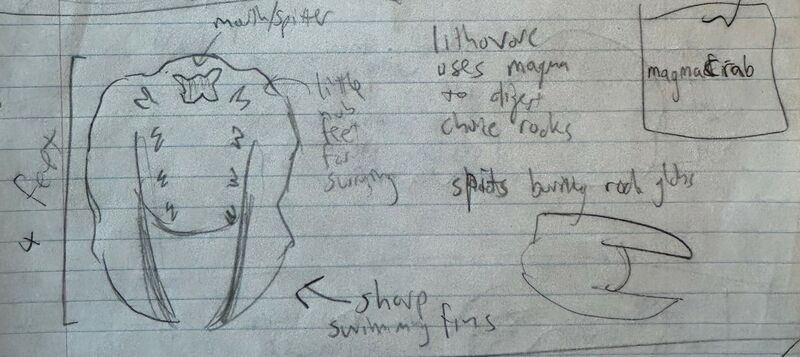 mouth/spitter
little
nub
feet
for
swimming
4 feet
sharp
swimming fins
lithovore
uses magma
to digest
chone rocks
spits burning rock globs
magma crab